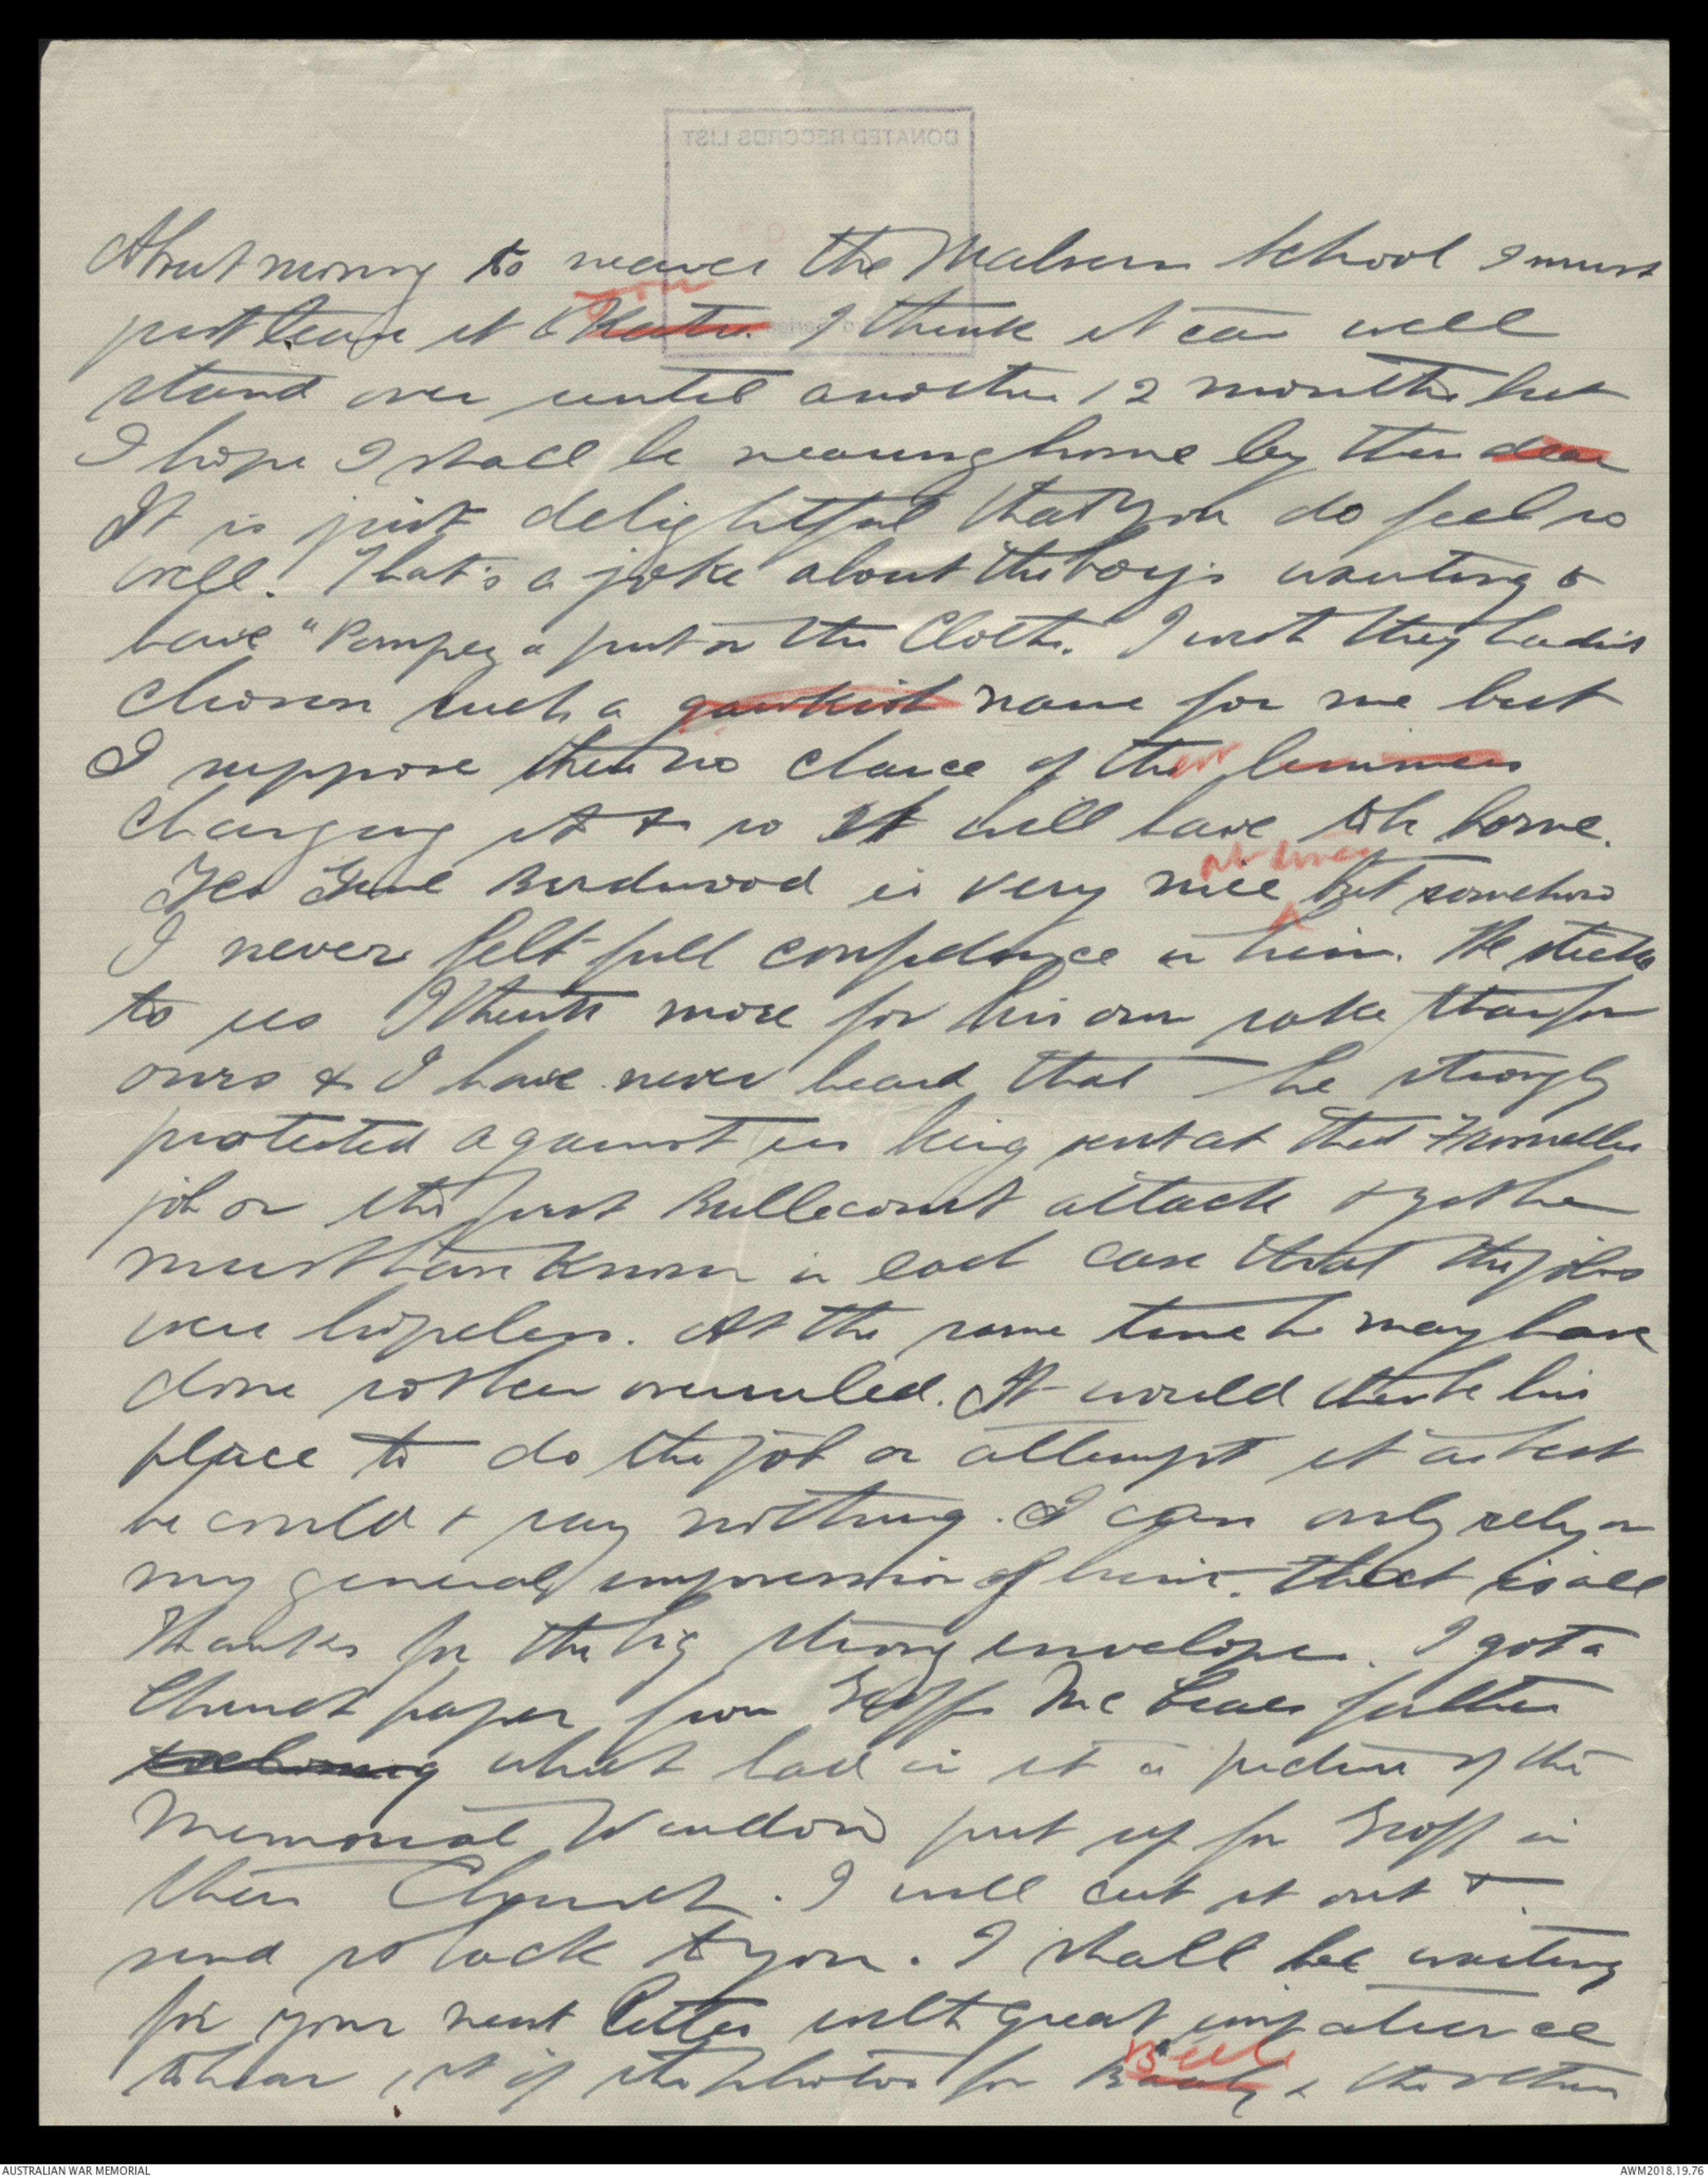 DONATED RECORDS LIST
About moving to nearer the Malvern School I must
just leave it to Katie. you I think it can well
stand over until another 12 months but
I hope I shall be nearing home by then dear
It is just delightful that you do feel so
well. That's a joke about the boys wanting to
have "Pompey" put on the Cloth. I wish they hadn't
chosen such a gawkish name for me but
I suppose there no chance of their
changing it & so it will have to be borne.
Yes Genl Birdwood is very nice at times but somehow
I never felt full confidence in him. He sticks
to us I think more for his own sake than for
ours & I have never heard that he strongly
protested against us being put at that Fromelles
job or the first Bullecourt attack & yet he
must have known in each case that the jobs
were hopeless. At the same time he may have
done so & been overruled. It would then be his
place to do the job or attempt it as best
he could & say nothing. I can only rely on
my general impression of him. that is all
Thanks for the big strong envelopes. I got a
Church paper from Geoff Mc Crae's father
what had in it a picture of the
Memorial Window put up for Geoff in
their Church. I will cut it out &
send it back to you. I shall be waiting
for your next letter with great impatience
to hear 1st if the photos for Baby Bill & the other
AUSTRALIAN WAR MEMORIAL
AWM2018.19.76